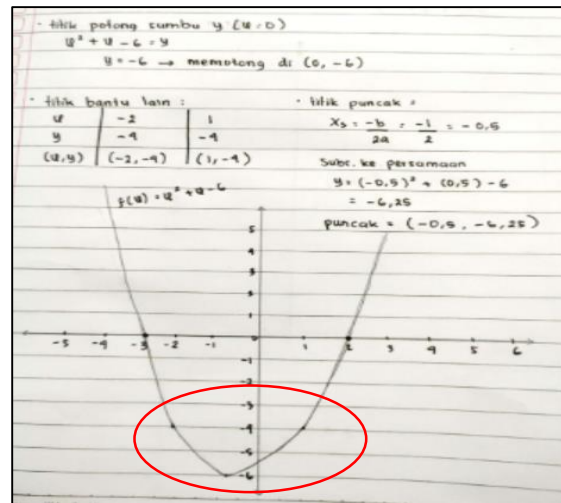 · titik potong sumbu y (x=0)
x² + x - 6 = y
y = -6 → memotong di (0, -6)
· titik bantu lain :
x | -2 | 1
y | -4 | -4
(x,y) | (-2,-4) | (1,-4)
· titik puncak =
Xs = -b/2a = -1/2 = -0,5
Subs. ke persamaan
y = (-0,5)² + (0,5) - 6
= -6,25
puncak = (-0,5, -6,25)
f(x) = x² + x - 6
5
4
3
2
1
-5 -4 -3 -2 -1 1 2 3 4 5 6
-2
-3
-4
-5
-6